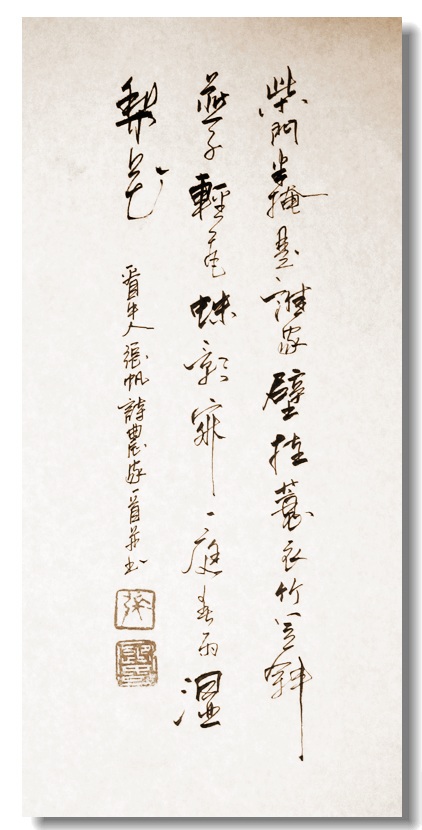 柴門半掩是誰家壁挂蓑衣竹笠斜
燕子輕飛蛛影寂一庭春雨濕
梨花
牛人張帆詩農家一首并书
張